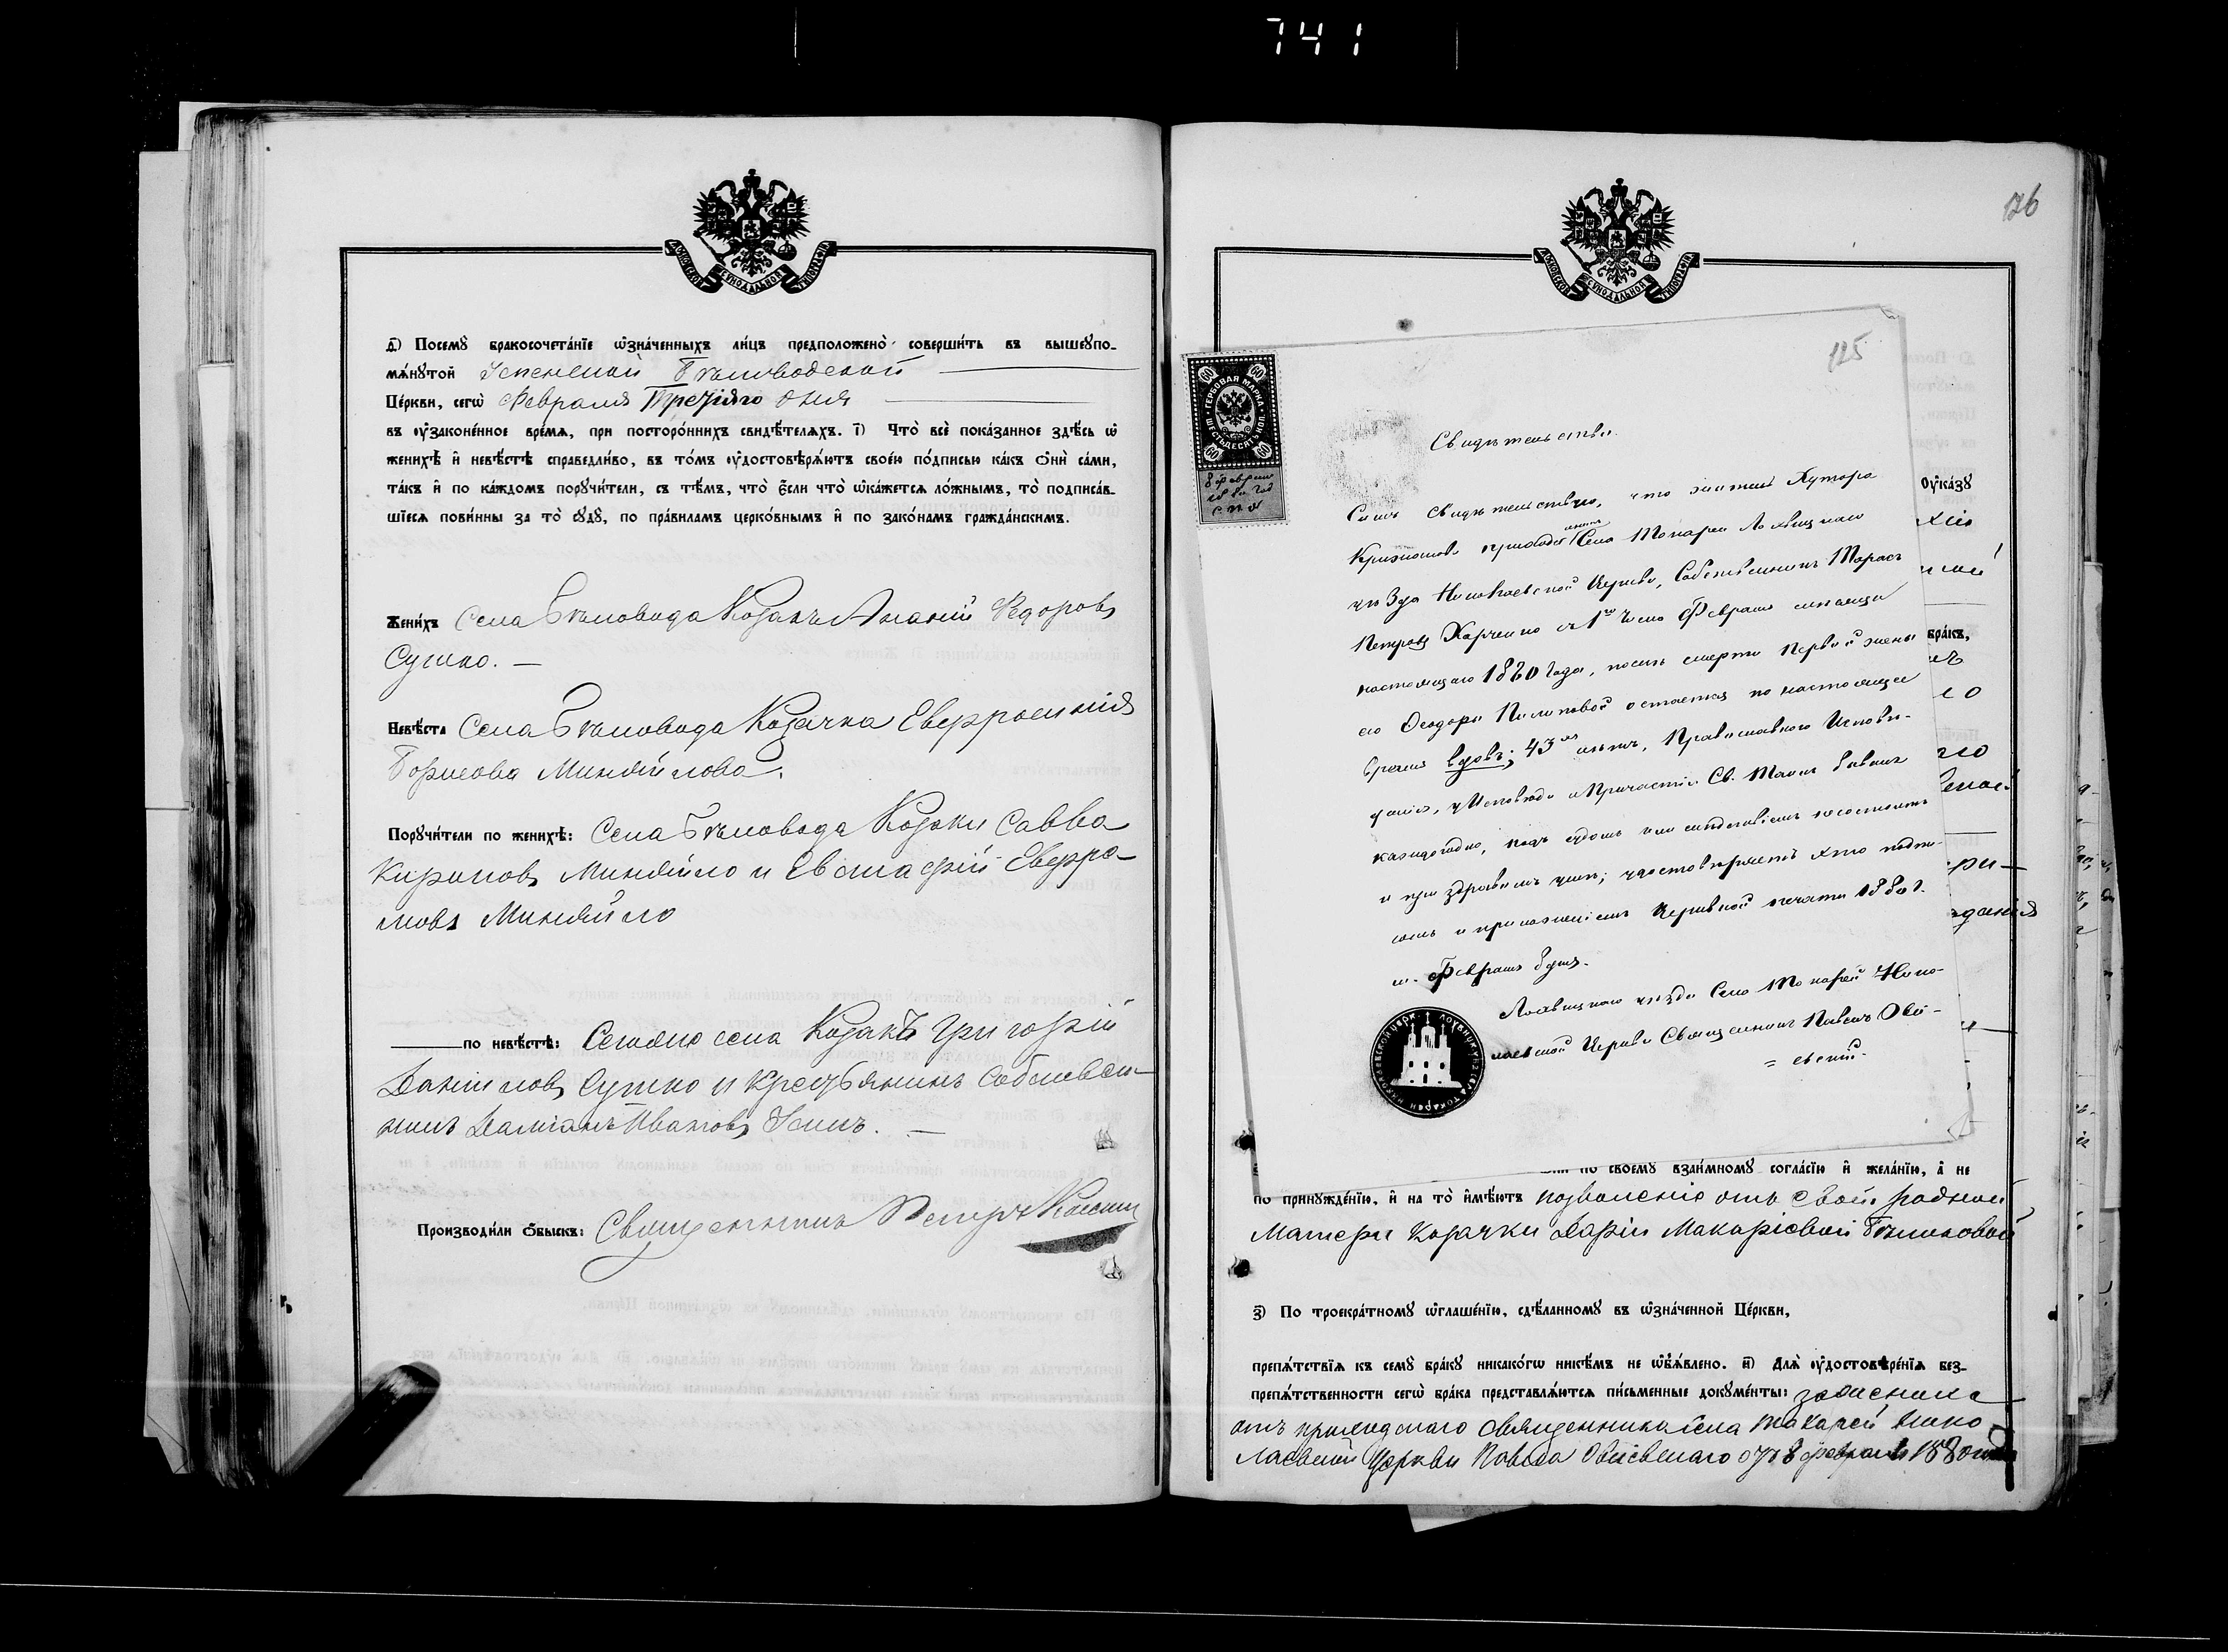 741
МОСКОВСКОЙ СѴНОДАЛЬНОЙ ТИПОГРАФІИ
д҃і) Посемꙋ бракосочета́нїе ѡ҆зна́ченныхъ ли́цъ предположено̀ соверши́ть въ вышеꙋпо-
мѧ́нꙋтой Успенской Бѣловодской
Це́ркви, сегѡ̀ Февраля Третіяго дня
въ ᲂу҆законе́нное вре́мѧ, при посторо́ннихъ свидѣ́телѧхъ. і҃) Что̀ всѐ пока́занное здѣ́сь ѡ҆
женихѣ̀ и҆ невѣ́стѣ справедли́во, въ то́мъ ᲂу҆достовѣрѧ́ютъ свое́ю по́дписью ка́къ ѻ҆нѝ са́ми,
та́къ и҆ по ка́ждомъ порꙋчи́тели, съ тѣ́мъ, что̀ є҆́сли что̀ ѡ҆ка́жетсѧ ло́жнымъ, то̀ подписа́в-
шїесѧ пови́нны за то̀ сꙋдꙋ̀, по пра́виламъ церко́внымъ и҆ по зако́намъ гражда́нскимъ.
Жени́хъ Села Бѣловода Козакъ Ананій Федоровъ
Сушко. —
Невѣ́ста Села Бѣловода Козачка Евфросинія
Борисова Миняйлова.
Порꙋчи́тели по женихѣ̀: Села Бѣловода Козаки Савва
Кириловъ Миняйло и Евстафій Евфре-
мовъ Миняйло
по невѣ́стѣ: Сегожо села Козакъ Григорій
Даниловъ Сушко и Крестьянинъ Собствен-
никъ Даміанъ Ивановъ
Производи́ли ѻ҆́быскъ: Священникъ Петръ
126
МОСКОВСКОЙ СѴНОДАЛЬНОЙ ТИПОГРАФІИ
125
ГЕРБОВАЯ МАРКА
ШЕСТЬДЕСЯТЪ КОП.
60 60 60 60
8 февраля
Свидѣтельство.
Симъ свидѣтельствую, что житель Хутора
прихода Села Токарей Лохвицкаго
уѣзда Николаевской Церкви, Собственникъ Тарасъ
Петровъ Харченко съ 1го числа Февраля мѣсяца
настоящаго 1880 года, послѣ смерти первой жены
его Ѳеодоры Пилиповой остается по настоящее
время вдовъ; 43 лѣтъ, Православного Исповѣ-
данія, у Исповѣди и Причастія Св. Таинъ бываетъ
каждогодно, подъ судомъ или слѣдствіемъ не состоитъ
и при здравомъ умѣ; удостовѣряетъ что подпи-
сомъ и приложеніемъ Церковной печати 1880 г.
м. Февраля 8 дня.
Лохвицкаго уѣзда Села Токарей Нико-
лаевской Церкви Священникъ Павелъ Овсі-
= евскій.
ᲂу҆ка́зꙋ
бра́къ,
по своемꙋ̀ взаи́мномꙋ согла́сїю и҆ жела́нїю, а҆ не
по принꙋжде́нїю, и҆ на то̀ и҆мѣ́ютъ позволеніе отъ своей родной
Матери Козачки Даріи Макаріевой Бѣликовой
з҃) По троекра́тномꙋ ѡ҆глаше́нїю, сдѣ́ланномꙋ въ ѡ҆зна́ченной Це́ркви,
препѧ́тствїѧ къ семꙋ̀ бра́кꙋ никако́гѡ никѣ́мъ не ѡ҆б̾ѧ́влено. и҃) Длѧ̀ ᲂу҆достовѣре́нїѧ без-
препѧ́тственности сегѡ̀ бра́ка представлѧ́ютсѧ пи́сьменные докꙋме́нты:
отъ приходскаго священника села Токарей Нико
лаевской Церкви Павла Овсіевскаго отъ 8 февраля 1880 года